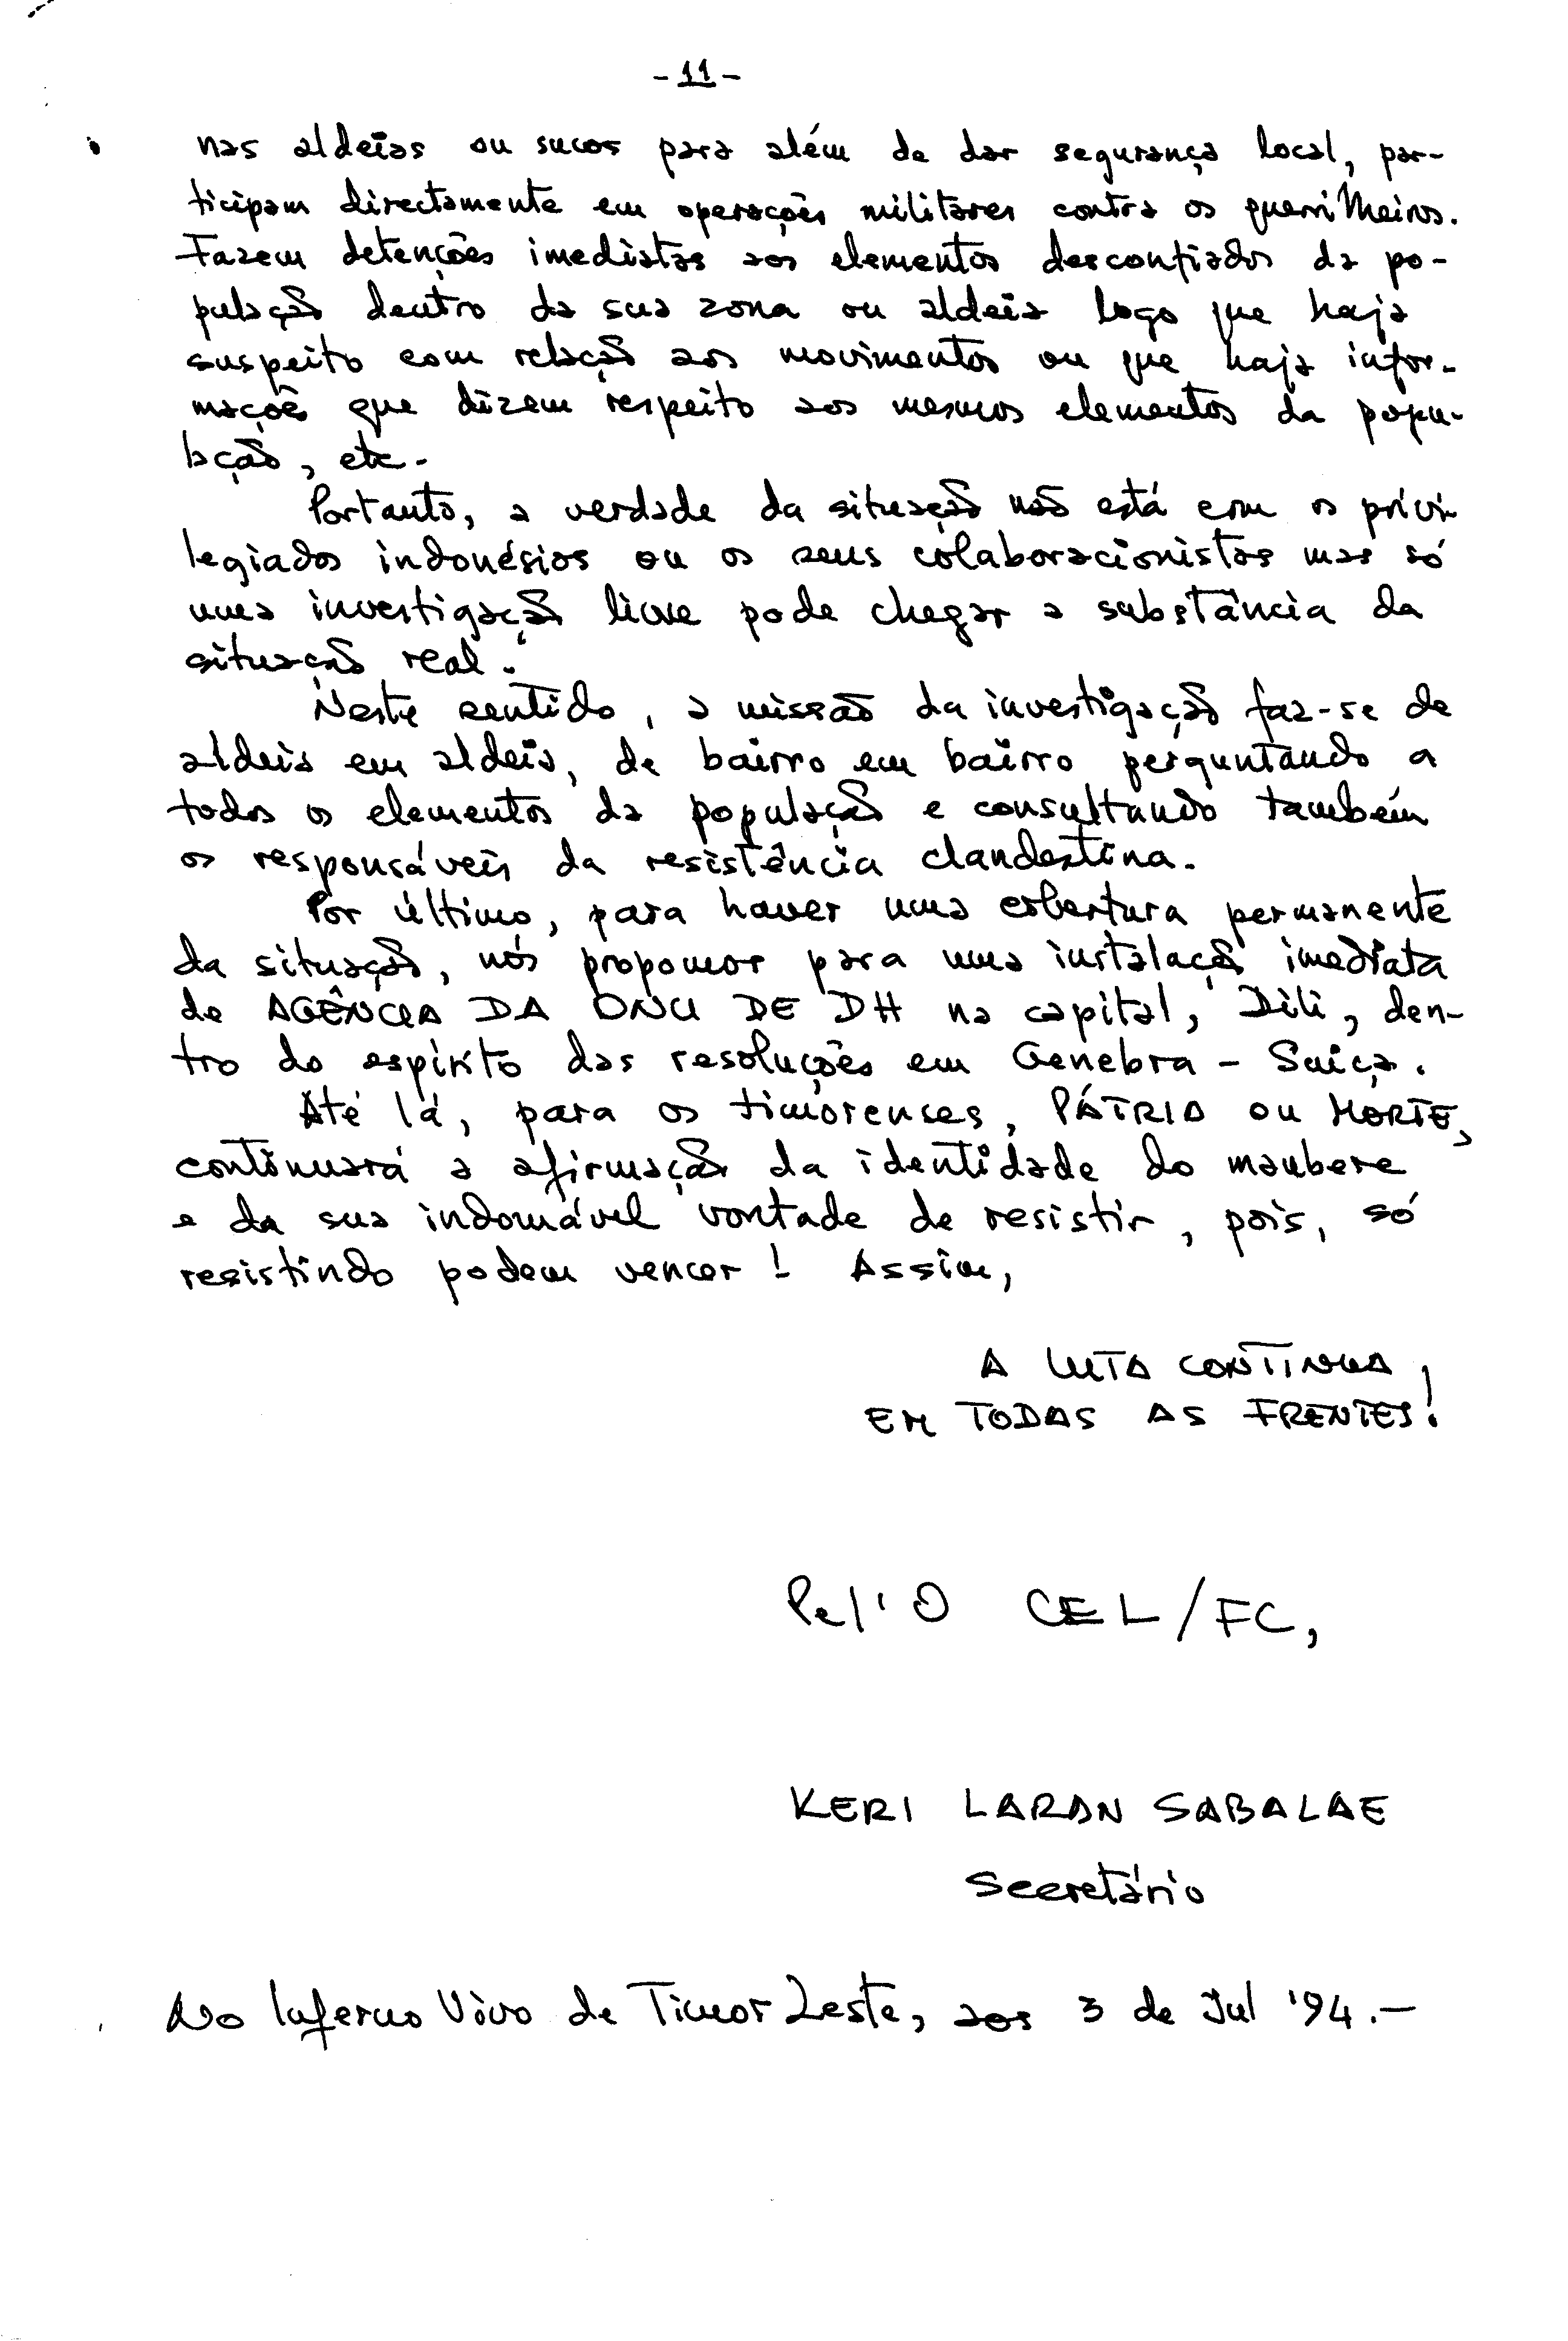 -11-
nas aldeias ou sucos para além de dar segurança local, par-
ticipam directamente em operações militares contra os guerrilheiros.
Fazem detenções imediatas aos elementos desconfiados da po-
pulação dentro da sua zona ou aldeia logo que haja
suspeito com relação aos movimentos ou que haja infor-
mações que dizem respeito aos mesmos elementos da popu-
lação, etc.
Portanto, a verdade da situação não está com os privi-
legiados indonésios ou os seus colaboracionistas mas só
uma investigação livre pode chegar a substância da
situação real.
Neste sentido, a missão da investigação faz-se de
aldeia em aldeia, de bairro em bairro perguntando a
todos os elementos da população e consultando também
os responsáveis da resistência clandestina.
Por último, para haver uma cobertura permanente
da situação, nós propomos para uma instalação imediata
de AGÊNCIA DA ONU DE DH na capital, Dili, den-
tro do espírito das resoluções em Genebra - Suiça.
Até lá, para os timorenses, PÁTRIA OU MORTE,
continuará a afirmação da identidade do maubere
e da sua indomável vontade de resistir, pois, só
resistindo podem vencer! Assim,
A LUTA CONTINUA
EM TODAS AS FRENTES!
Pel'O CEL/FC,
KERI LARAN SABALAE
Secretário
No Inferno Vivo de Timor Leste, aos 3 de Jul '94.-